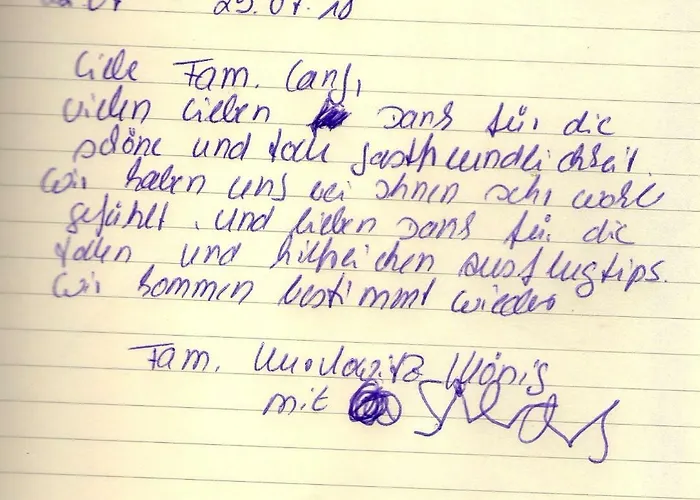 29.07.10
Liebe Fam. Lang,
vielen lieben Dank für die
schöne und tolle Gastfreundlichkeit.
Wir haben uns bei ihnen sehr wohl
gefühlt, und lieben Dank für die
tollen und hilfreichen Ausflugtips.
Wir kommen bestimmt wieder
Fam.
mit